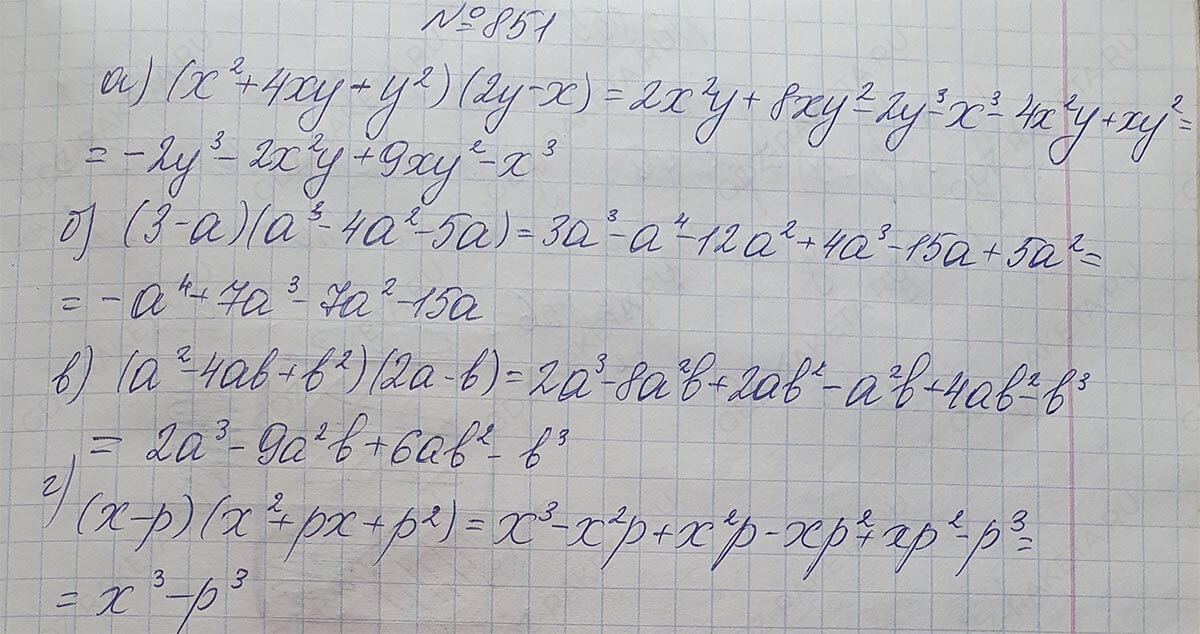 №851
а) (x²+4xy+y²)(2y-x)=2x²y+8xy²-2y³-x³-4x²y+xy²=
=-2y³-2x²y+9xy²-x³
б) (3-a)(a³-4a²-5a)=3a³-a⁴-12a²+4a³-15a+5a²=
=-a⁴+7a³-7a²-15a
в) (a²-4ab+b²)(2a-b)=2a³-8a²b+2ab²-a²b+4ab²-b³
=2a³-9a²b+6ab²-b³
г) (x-p)(x²+px+p²)=x³-x²p+x²p-xp²+xp²-p³=
=x³-p³